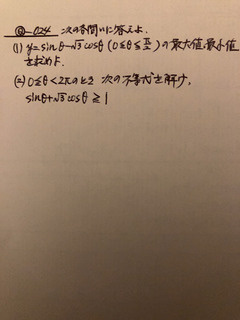 Q-024 次の各問いに答えよ.
(1) y=sinθ-√3cosθ (0≦θ≦π/2) の最大値.最小値
を求めよ.
(2) 0≦θ<2πのとき 次の不等式を解け.
sinθ+√3cosθ≧1